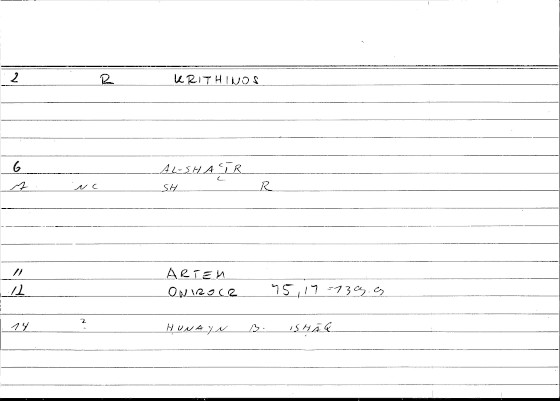 2 R KRITHINOS
6 AL-SHAʿĪR
7 NC SH R
11 ARTEM
12 ONIROCR 75,17
14 ? ḤUNAYN B. ISḤĀQ